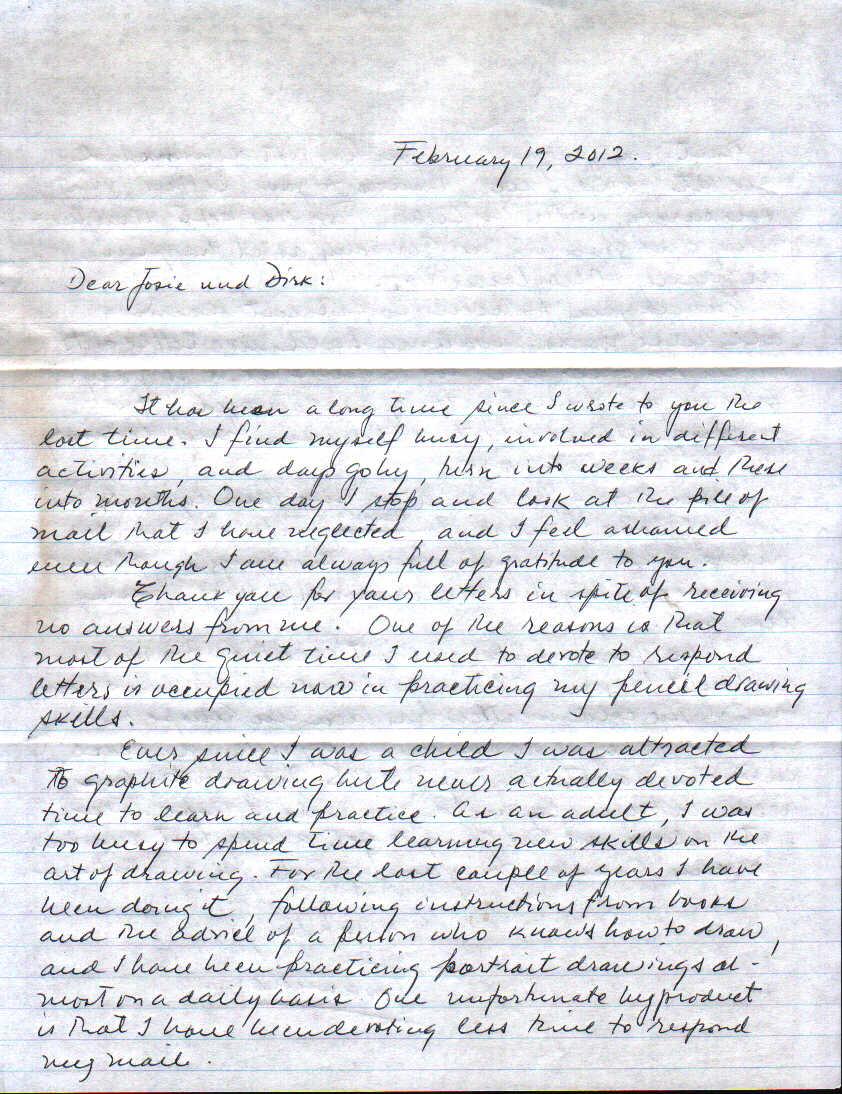 February 19, 2012.
Dear Josie and Dirk:
It has been a long time since I wrote to you the
last time. I find myself busy, involved in different
activities, and days go by, turn into weeks and these
into months. One day I stop and look at the pile of
mail that I have neglected, and I feel ashamed
even though I am always full of gratitude to you.
Thank you for your letters in spite of receiving
no answers from me. One of the reasons is that
most of the quiet time I used to devote to respond
letters is occupied now in practicing my pencil drawing
skills.
Ever since I was a child I was attracted
to graphite drawing but never actually devoted
time to learn and practice. As an adult, I was
too busy to spend time learning new skills on the
art of drawing. For the last couple of years I have
been doing it, following instructions from books
and the advice of a person who knows how to draw,
and I have been practicing portrait drawings al-
most on a daily basis. One unfortunate byproduct
is that I have been devoting less time to respond
my mail.